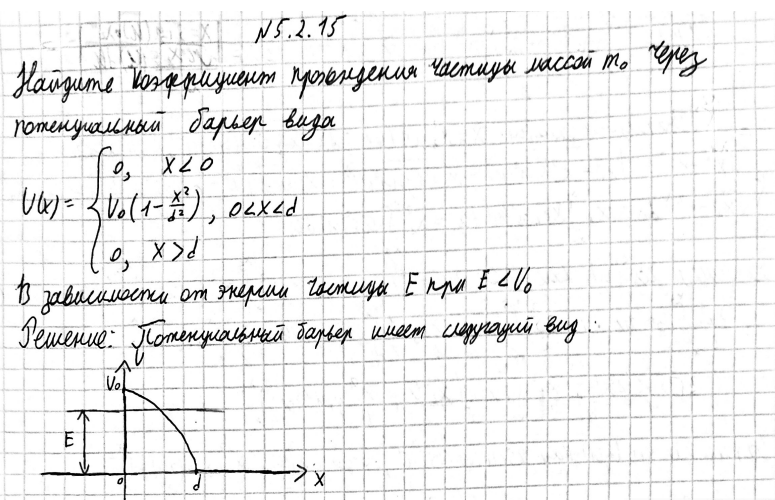 №5.2.15
Найдите коэффициент прохождения частицы массой m₀ через
потенциальный барьер вида
U(x) = { 0, x < 0
V₀(1 - x²/d²), 0 < x < d
0, x > d
В зависимости от энергии частицы E при E < V₀
Решение: Потенциальный барьер имеет следующий вид:
V₀
E
0 d x